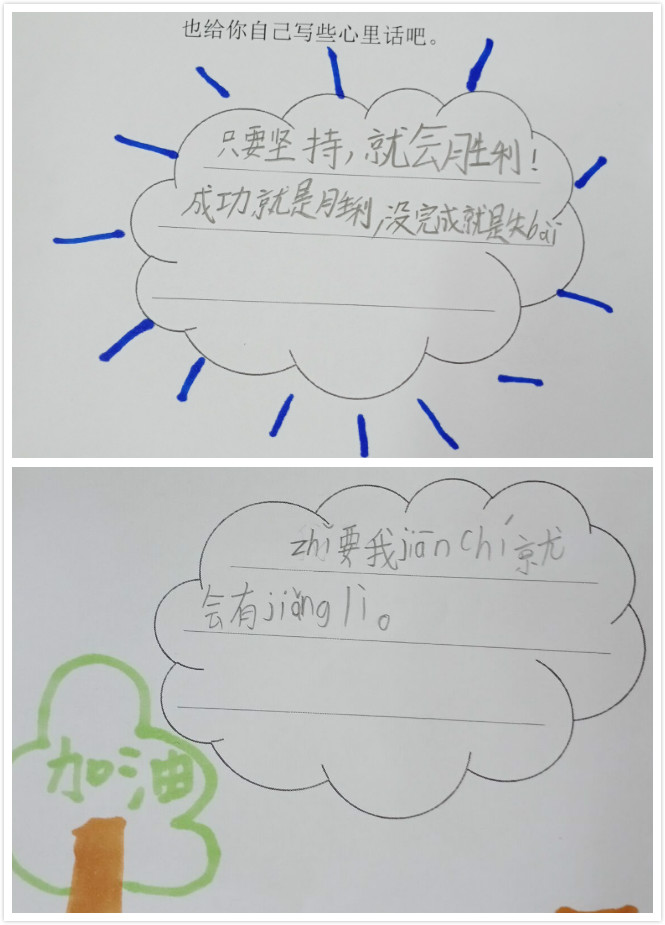 也给你自己写些心里话吧。
只要坚持,就会胜利!
成功就是胜利,没完成就是失bài
zhǐ要我jiān chí就
会有jiǎng lì。
加油